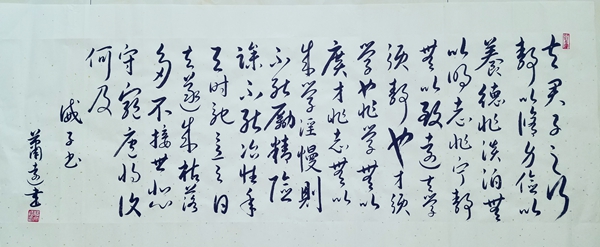 夫君子之行
静以修身俭以
養德非淡泊無
以明志非宁静
無以致遠夫学
须静也才须
学也非学無以
廣才非志無以
成学淫慢則
不能勵精險
躁不能冶性年
与时驰意与日
去遂成枯落
多不接世悲
守窮廬将復
何及
诫子书
蕭遠書